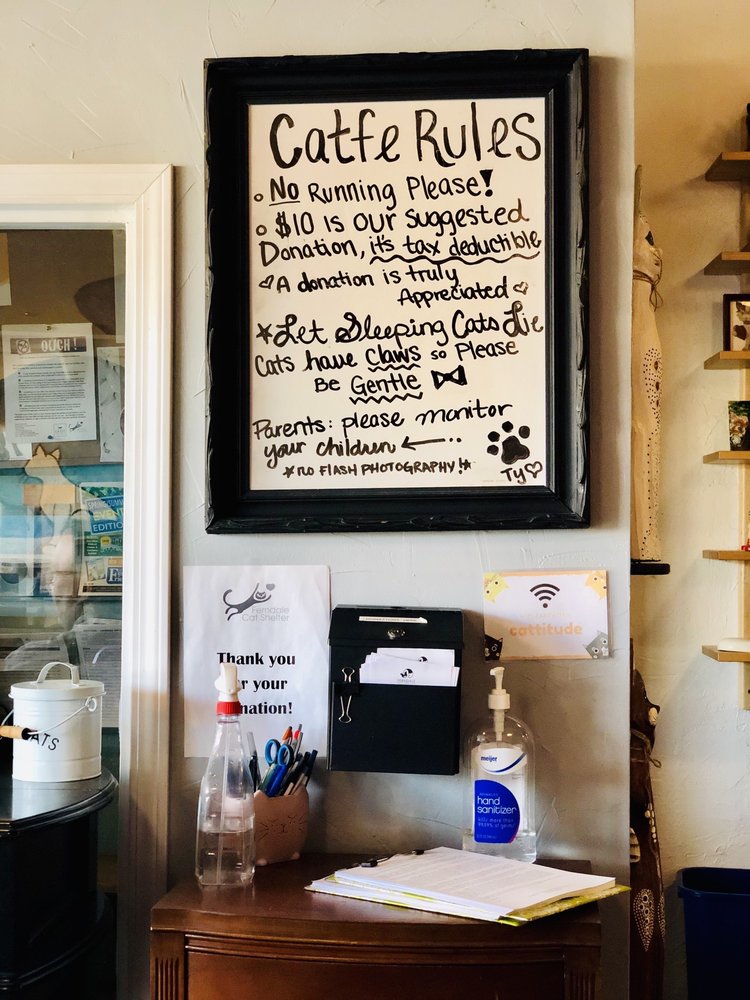 Catfe Rules
No Running Please!
$10 is our suggested
Donation, it's tax deductible
A donation is truly
Appreciated
Let Sleeping Cats Lie
Cats have claws so Please
Be Gentle
Parents: please monitor
your children
NO FLASH PHOTOGRAPHY!
TY
OUCH!
Ferndale
Cat Shelter
Thank you
your
cattitude
meijer
hand
sanitizer
kills more than
99.99% of germs
EDITIO